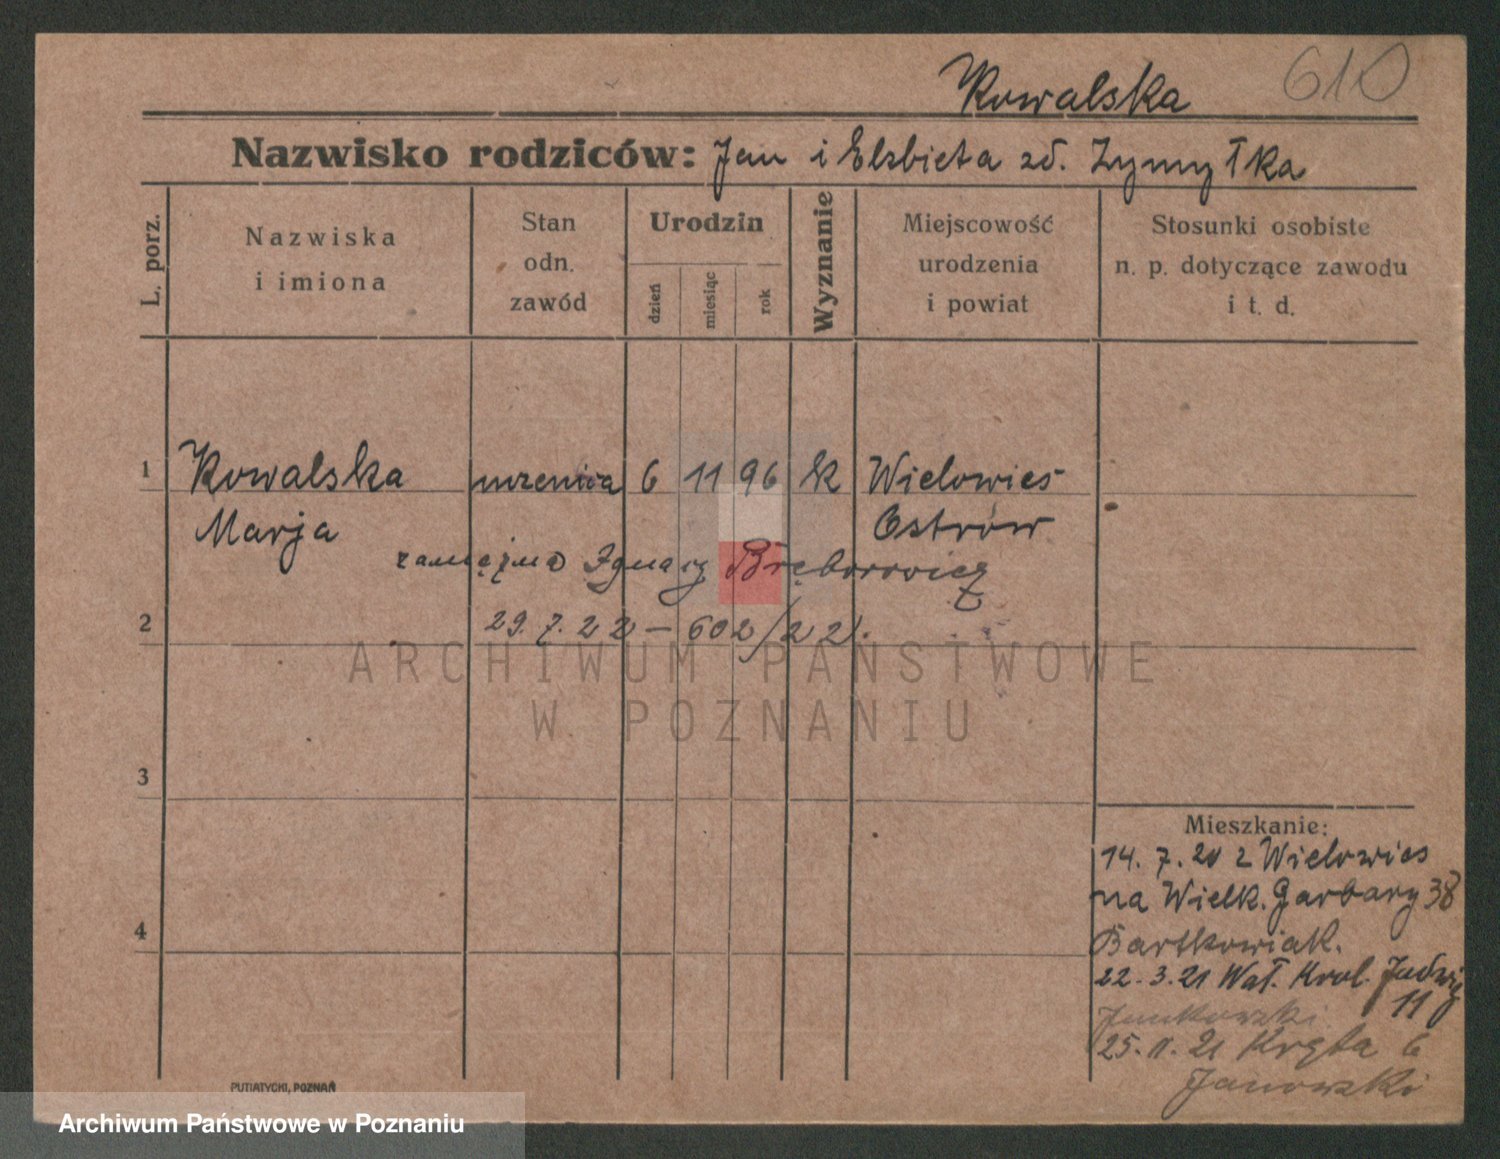 Kowalska 610
Nazwisko rodziców: Jan i Elżbieta zd. Zymyłka
L. porz.
Nazwiska
i imiona
Stan
odn.
zawód
Urodzin
dzień
miesiąc
rok
Wyznanie
Miejscowość
urodzenia
i powiat
Stosunki osobiste
n. p. dotyczące zawodu
i t. d.
1 Kowalska 6 11 96 k Wielowieś
Marja Ostrów
zamężna Ignacy
2 29.7.22 – 602/22.
ARCHIWUM PAŃSTWOWE
W POZNANIU
3
Mieszkanie:
14. 7. 20 z Wielowieś
na Wielk. Garbary 38
4
Bartkowiak.
22. 3. 21 Wał. Krol. Jadwig
11
Jankowski
25. 11. 21 Kręta 6
Janowski
PUTIATYCKI, POZNAŃ
Archiwum Państwowe w Poznaniu